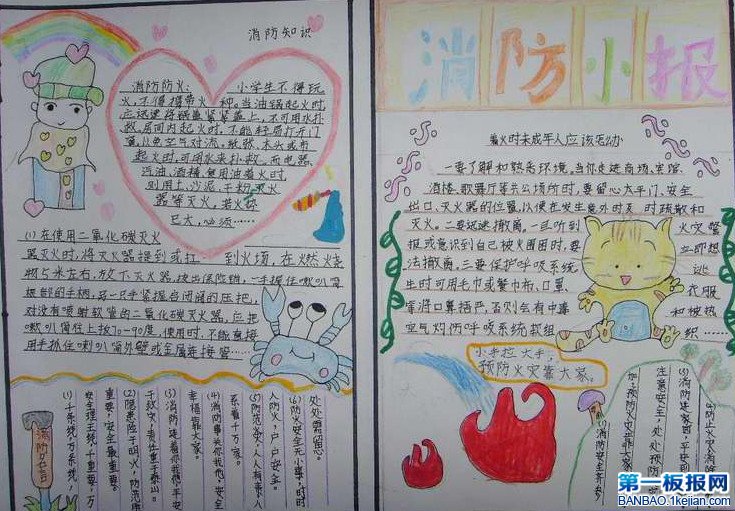 消防知识
消防防火: 小学生不得玩
火,不得携带火种。当油锅起火时,
应迅速将锅盖紧紧盖上,不可用水扑
救。房间内起火时,不能轻易打开门
窗,以免空气对流,纸张、木头或布
起火时,可用水来扑救,而电器、
汽油、酒精、食用油着火时
则用土、沙泥、干粉灭火
器等灭火,若火势
已大,必须……
(1)在使用二氧化碳灭火
器灭火时,将灭火器提到或扛 到火场,在燃烧
物5米左右,放下灭火器,拔出保险销,一手握住喇叭筒
根部的手柄,另一只手紧握启闭阀的压把,
对没有喷射软管的二氧化碳灭火器,应把
喇叭筒往上扳70-90度,使用时,不能直接
用手抓住喇叭筒外壁或金属连接管……
消防名言
(1)千条线,万条线,
安全理王线,千重要,万
重要,安全最重要。
(2)隐患险于明火,防范胜
于救灾,责任重于泰山。
(3)消防连着你我他,平安
幸福靠大家。
(4)消防事关你我他,安全
系着千万家。
(5)防范火灾人人有责,人
人防火,户户安全。
(6)防火安全无小事,时时
处处需留意。
消防小报
着火时未成年人应该怎办
一要了解和熟悉环境。当你走进商场、宾馆、
酒楼、歌舞厅等公共场所时,要留心太平门、安全
出口、灭火器的位置,以便在发生意外时及时疏散和
灭火。二要迅速撤离。一旦听到 火灾警
报或意识到自己被火围困时,要 立即想
法撤离。三要保护呼吸系统 逃
生时可用毛巾或餐巾布、口罩、 衣服
等将口鼻捂严,否则会有中毒 和被热
空气灼伤呼吸系统软组 织……
小手拉大手,
预防火灾靠大家。
(1)消防安全齐参
加,预防火灾靠大家
注意安全,处处预防
(3)消防连家四平安到
(4)防止火灾消除
第一板报网
BANBAO.1kejian.com